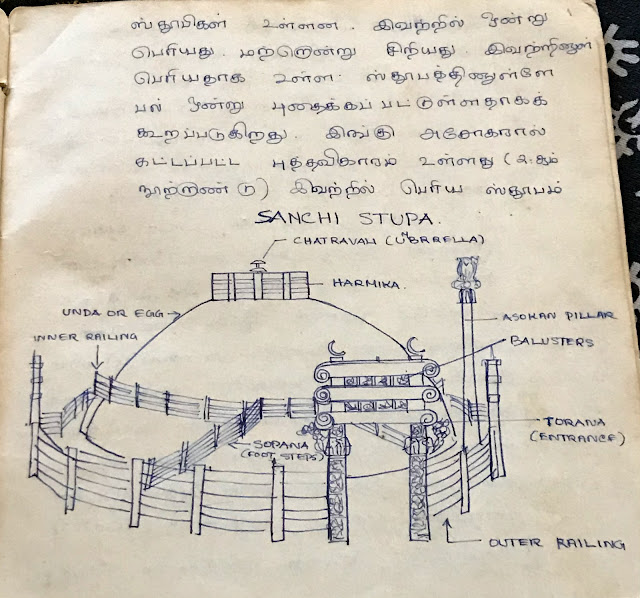 ஸ்தூபிகள் உள்ளன. இவற்றில் ஒன்று
பெரியது. மற்றொன்று சிறியது. இவற்றினுள்
பெரியதாக உள்ள ஸ்தூபத்தினுள்ளே
பல் ஒன்று புதைக்கப்பட்டுள்ளதாகக்
கூறப்படுகிறது. இங்கு அசோகரால்
கட்டப்பட்ட புத்தவிகாரம் உள்ளது (2.கம்
நூற்றுண்டு) இவற்றில் பெரிய ஸ்தூபம்
SANCHI STUPA.
CHATRAVALI (UNBRRELLA)
HARMIKA.
UNDA OR EGG
ASOKAN PILLAR
INNER RAILING
BALUSTERS
TORANA
(ENTRANCE)
SOPANA
(FOOT STEPS)
OUTER RAILING